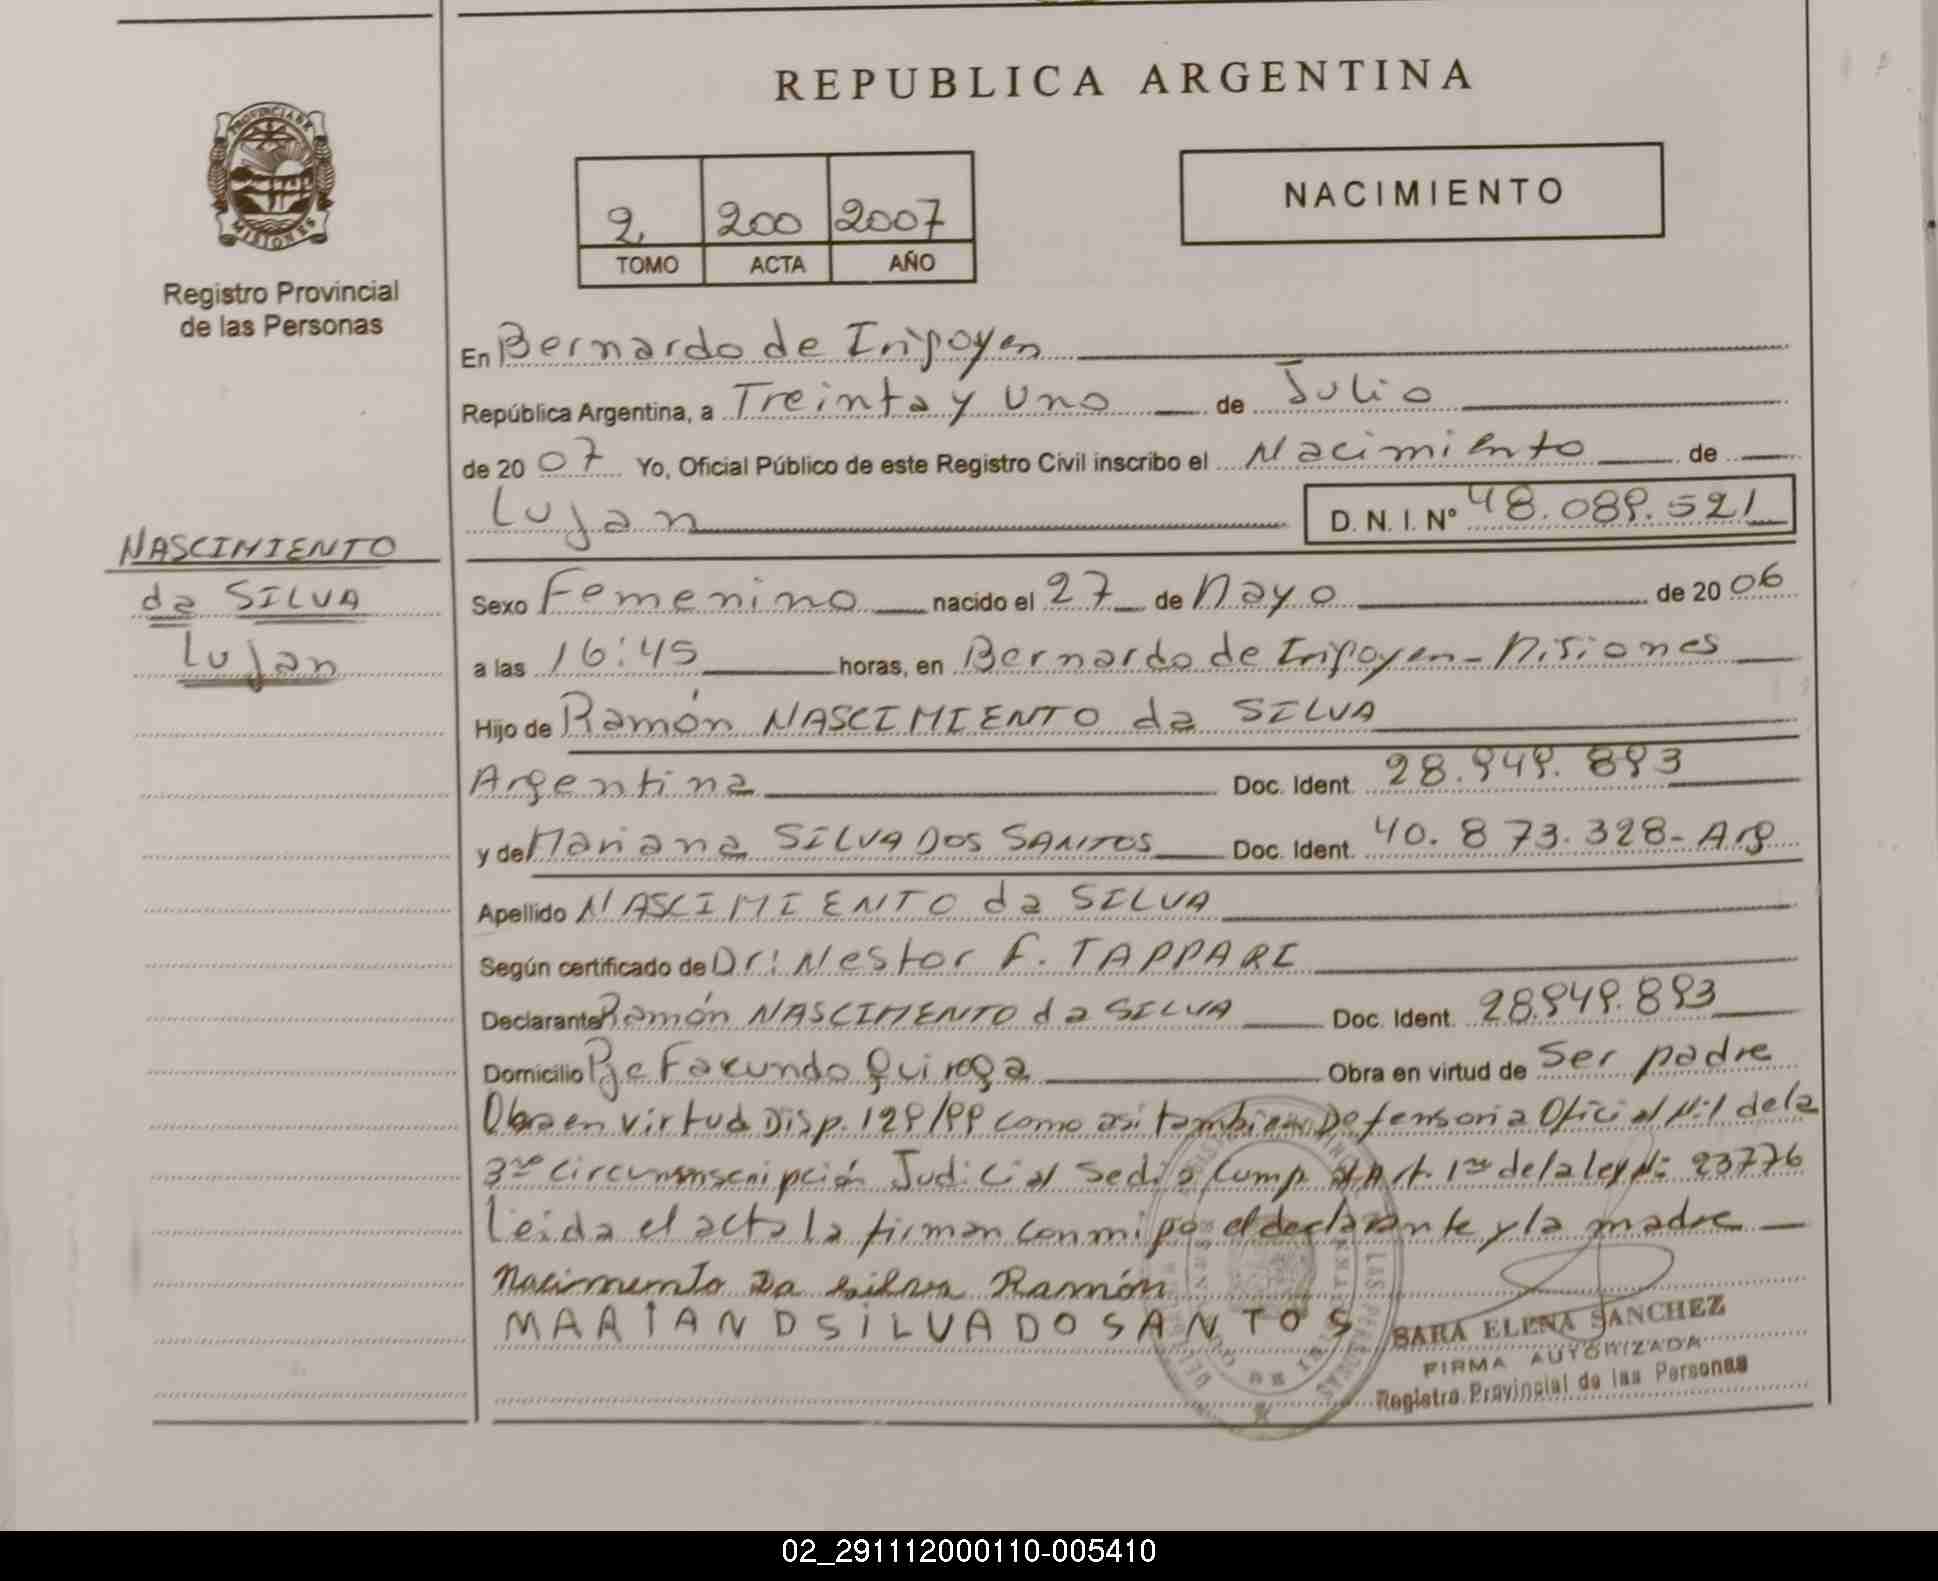 REPUBLICA ARGENTINA
PROVINCIA DE
MISIONES
Registro Provincial
de las Personas
2 200 2007
TOMO ACTA AÑO
NACIMIENTO
En Bernardo de Irigoyen
República Argentina, a Treinta y Uno de Julio
de 20 07 Yo, Oficial Público de este Registro Civil inscribo el Nacimiento de
Lujan D. N. I. Nº 48.089.521
NASCIMIENTO
da SILVA
Lujan
Sexo Femenino nacido el 27 de Mayo de 20 06
a las 16:45 horas, en Bernardo de Irigoyen - Misiones
Hijo de Ramón NASCIMIENTO da SILVA
Argentina Doc. Ident. 28.949.893
y de Mariana SILVA DOS SANTOS Doc. Ident. 40.873.328 - Arg
Apellido NASCIMIENTO da SILVA
Según certificado de Dr: Nestor F. TAPPARI
Declarante Ramón NASCIMENTO da SILVA Doc. Ident. 28.949.893
Domicilio Pje Facundo Quiroga Obra en virtud de Ser padre
Obra en virtud Disp. 129/99 como asi tambien Defensoria Oficial N:1 de la
3ra Circunscripción Judicial Cump. Art. 1ro de la ley N: 23776
Leida el acta la firman conmigo el declarante y la madre
Nacimento Da silva Ramón
MARIANDSILVADOSANTOS
SARA ELENA SANCHEZ
FIRMA AUTORIZADA
Registro Provincial de las Personas
02_291112000110-005410